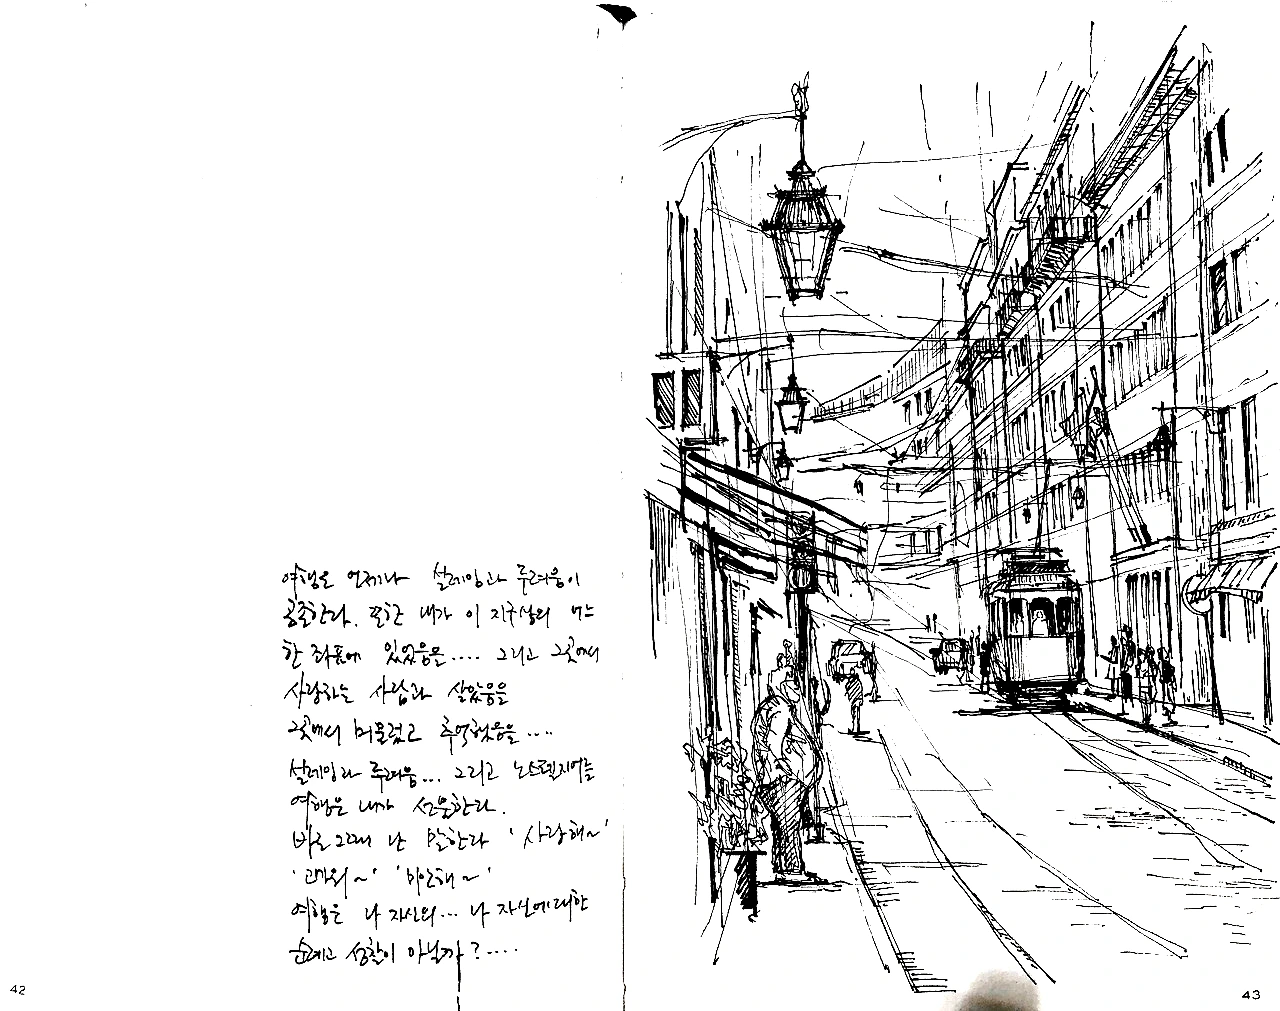 여행은 언제나 설레임과 두려움이
공존한다. 또한 내가 이 지구상의 어느
한 좌표에 있었음을.... 그리고 그곳에서
사랑하는 사람과 살았음을
그곳에서 머물렀고 추억했음을....
설레임과 두려움... 그리고 노스텔지어를
여행은 내가 선물한다.
바로 그때 난 말한다 '사랑해~'
'고마워~' '미안해~'
여행은 나 자신의... 나 자신에 대한
순례고 성찰이 아닐까?....
42
43